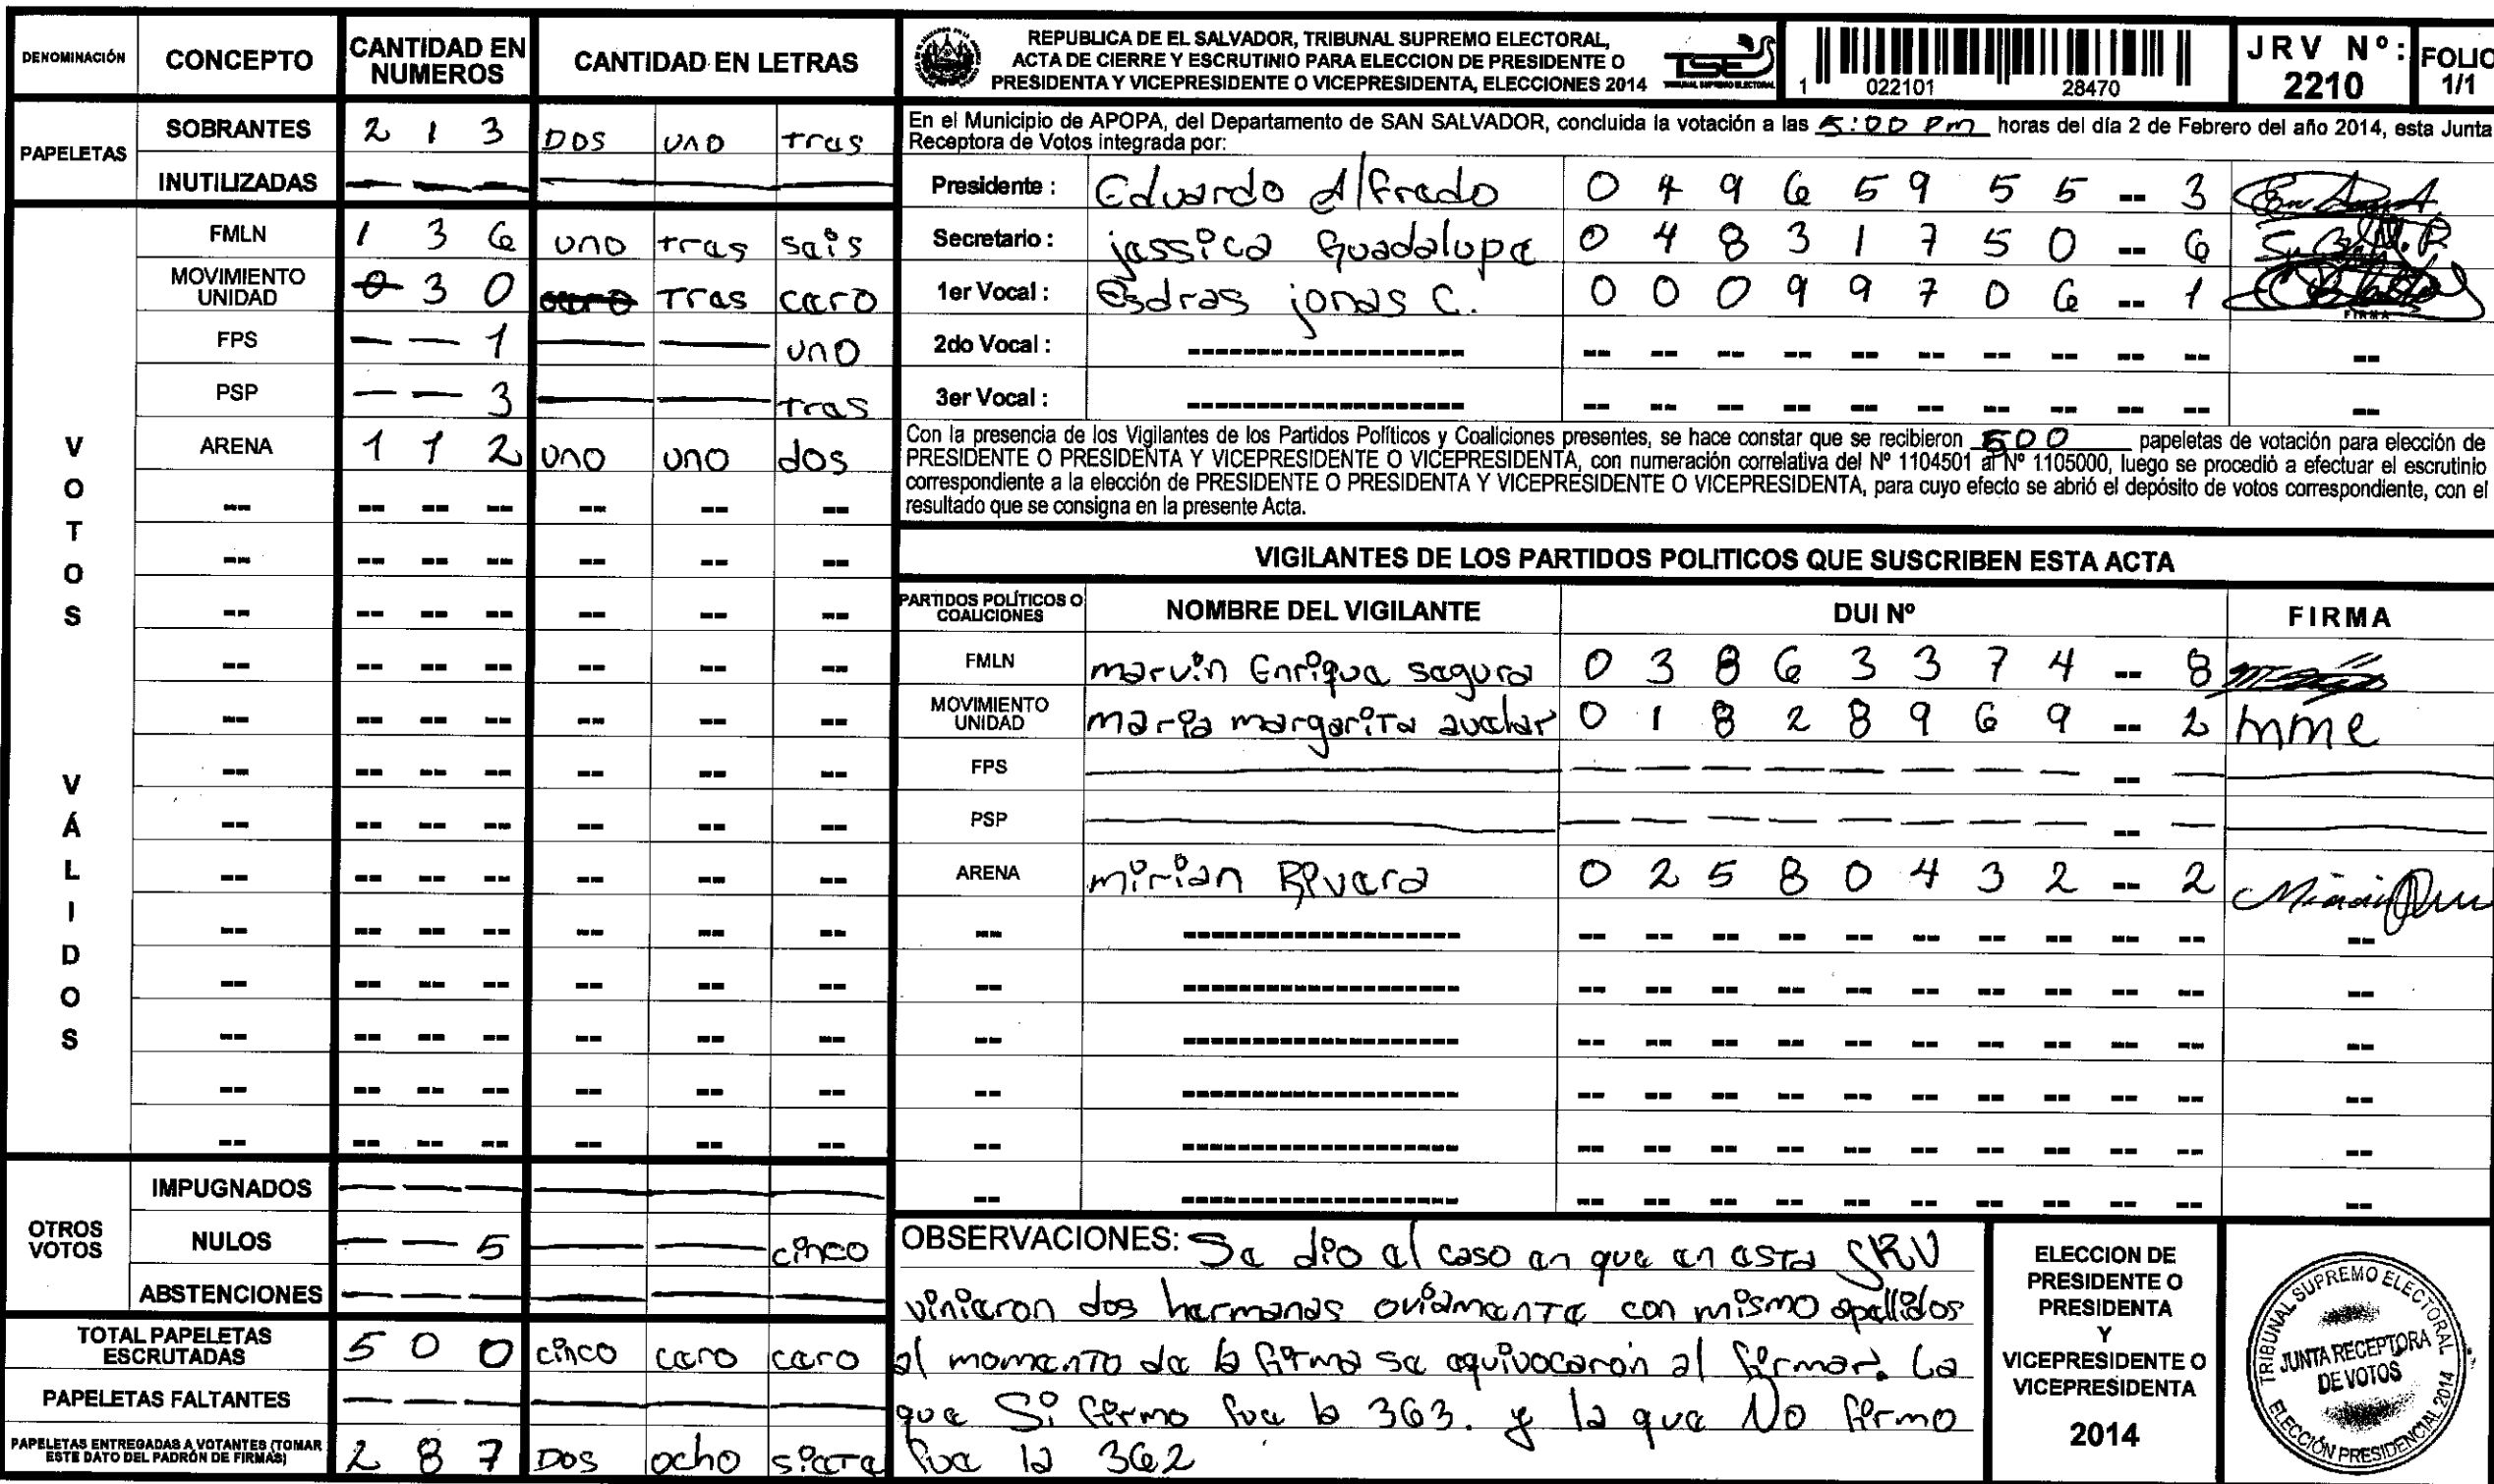 DENOMINACIÓN CONCEPTO CANTIDAD EN NUMEROS CANTIDAD EN LETRAS
PAPELETAS
SOBRANTES 2 1 3 DOS uno tres
INUTILIZADAS — — — — — —
VOTOS VÁLIDOS
FMLN 1 3 6 uno tres seis
MOVIMIENTO UNIDAD 0 3 0 cero tres cero
FPS — — 1 — — uno
PSP — — 3 — — tres
ARENA 1 1 2 uno uno dos
-- -- -- -- -- -- --
-- -- -- -- -- -- --
-- -- -- -- -- -- --
-- -- -- -- -- -- --
-- -- -- -- -- -- --
-- -- -- -- -- -- --
-- -- -- -- -- -- --
-- -- -- -- -- -- --
-- -- -- -- -- -- --
-- -- -- -- -- -- --
-- -- -- -- -- -- --
-- -- -- -- -- -- --
-- -- -- -- -- -- --
OTROS VOTOS
IMPUGNADOS — — — — — —
NULOS — — 5 — — cinco
ABSTENCIONES — — — — — —
TOTAL PAPELETAS ESCRUTADAS 5 0 0 cinco cero cero
PAPELETAS FALTANTES — — — — — —
PAPELETAS ENTREGADAS A VOTANTES (TOMAR ESTE DATO DEL PADRÓN DE FIRMAS) 2 8 7 DOS ocho siete
REPUBLICA DE EL SALVADOR, TRIBUNAL SUPREMO ELECTORAL,
ACTA DE CIERRE Y ESCRUTINIO PARA ELECCION DE PRESIDENTE O
PRESIDENTA Y VICEPRESIDENTE O VICEPRESIDENTA, ELECCIONES 2014
TSE
TRIBUNAL SUPREMO ELECTORAL
1 022101 28470
JRV Nº: 2210
FOLIO 1/1
En el Municipio de APOPA, del Departamento de SAN SALVADOR, concluida la votación a las 5:00 Pm horas del día 2 de Febrero del año 2014, esta Junta
Receptora de Votos integrada por:
Presidente : Eduardo Alfredo 0 4 9 6 5 9 5 5 -- 3
Secretario : jessica Guadalupe 0 4 8 3 1 7 5 0 -- 6
1er Vocal : Esdras jonas C. 0 0 0 9 9 7 0 6 -- 1
FIRMA
2do Vocal : ------------------ -- -- -- -- -- -- -- -- -- -- --
3er Vocal : ------------------ -- -- -- -- -- -- -- -- -- -- --
Con la presencia de los Vigilantes de los Partidos Políticos y Coaliciones presentes, se hace constar que se recibieron 500 papeletas de votación para elección de
PRESIDENTE O PRESIDENTA Y VICEPRESIDENTE O VICEPRESIDENTA, con numeración correlativa del Nº 1104501 al Nº 1105000, luego se procedió a efectuar el escrutinio
correspondiente a la elección de PRESIDENTE O PRESIDENTA Y VICEPRESIDENTE O VICEPRESIDENTA, para cuyo efecto se abrió el depósito de votos correspondiente, con el
resultado que se consigna en la presente Acta.
VIGILANTES DE LOS PARTIDOS POLITICOS QUE SUSCRIBEN ESTA ACTA
PARTIDOS POLÍTICOS O COALICIONES NOMBRE DEL VIGILANTE DUI Nº FIRMA
FMLN marvin Enrique segura 0 3 8 6 3 3 7 4 -- 8
MOVIMIENTO UNIDAD maria margarita avelar 0 1 8 2 8 9 6 9 -- 2 mme
FPS — — — — — — — — — -- — —
PSP — — — — — — — — — -- — —
ARENA mirian Rivera 0 2 5 8 0 4 3 2 -- 2
-- ------------------ -- -- -- -- -- -- -- -- -- -- --
-- ------------------ -- -- -- -- -- -- -- -- -- -- --
-- ------------------ -- -- -- -- -- -- -- -- -- -- --
-- ------------------ -- -- -- -- -- -- -- -- -- -- --
-- ------------------ -- -- -- -- -- -- -- -- -- -- --
-- ------------------ -- -- -- -- -- -- -- -- -- -- --
OBSERVACIONES: Se dio el caso en que en esta JRV
vinieron dos hermanas oviamente con mismo apellidos
al momento de la firma se equivocaron al firmar. La
que Si firmo fue la 363. y la que No firmo
fue la 362
ELECCION DE
PRESIDENTE O
PRESIDENTA
Y
VICEPRESIDENTE O
VICEPRESIDENTA
2014
TRIBUNAL SUPREMO ELECTORAL
JUNTA RECEPTORA
DE VOTOS
ELECCIÓN PRESIDENCIAL 2014